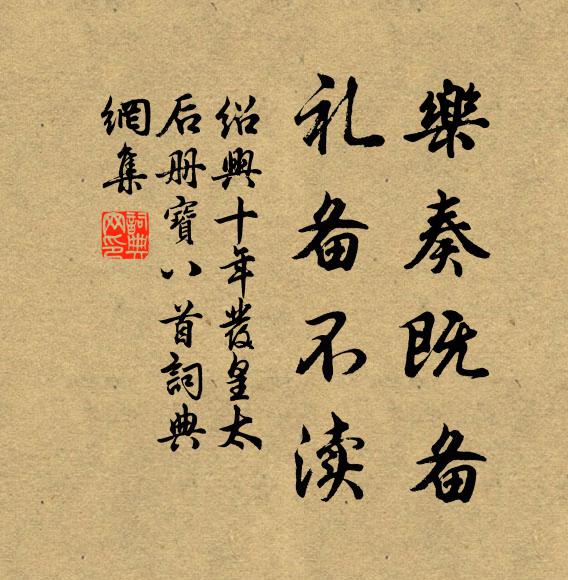 樂奏既备
礼备不渎
绍興十年發皇太
后册寶八首詞典
網集
詞典网印